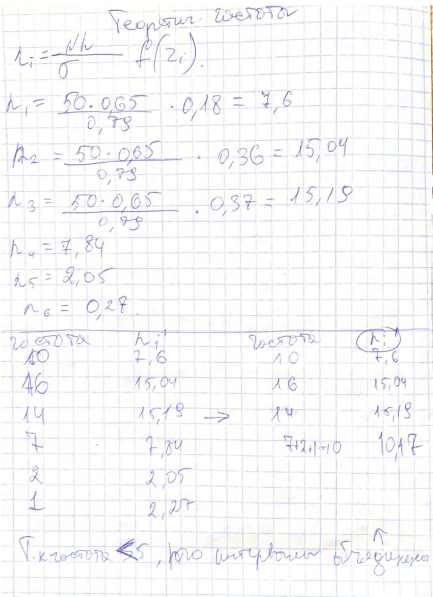 Теоретич. частота
n_i = Nh/σ f(z_i).
n_1 = 50·0,65/0,79 · 0,18 = 7,6
n_2 = 50·0,65/0,79 · 0,36 = 15,04
n_3 = 50·0,65/0,79 · 0,37 = 15,19
n_4 = 7,84
n_5 = 2,05
n_6 = 0,27.
частота n_i' частота n_i'
10 7,6 10 7,6
16 15,04 16 15,04
14 15,19 → 14 15,19
7 7,84 7+2+1=10 10,17
2 2,05
1 2,27
Т.к частота <5, интервалы объединены